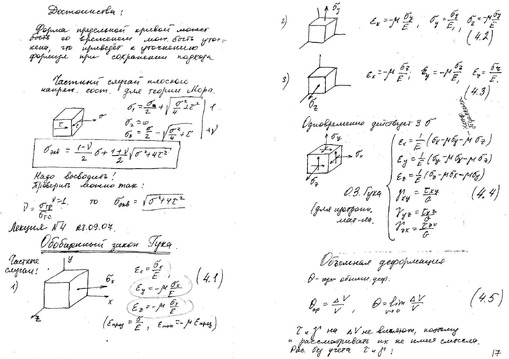 Достоинства:
Форма предельной кривой может
быть со временем мож. быть уточ-
нена, что приведёт к уточнению
формулы при сохранении подхода.
Частный случай плоского
напряж. сост. для теории Мора.
σ₁ = σ/2 + √(σ²/4 + τ²)
σ₂ = 0
σ₃ = σ/2 − √(σ²/4 + τ²)
σэкв = (1−ν)/2 σ + (1+ν)/2 √(σ² + 4τ²)
Надо выводить!
Проверить можно так:
ν = σтр/σтс = 1. то σэкв = √(σ² + 4τ²)
Лекция №4
Обобщенный закон Гука.
Частные
случаи:
1)
y
x
z
σx
εx = σx/E
εy = −μ σx/E
εz = −μ σx/E
(4.1)
(εпрод = σ/E, εпоп = −μ εпрод)
2)
σy
εx = −μ σy/E, εy = σy/E, εz = −μ σy/E
(4.2)
3)
σz
εx = −μ σz/E, εy = −μ σz/E, εz = σz/E
(4.3)
Одновременно действует 3 σ
σy
σx
σz
εx = 1/E (σx − μσy − μσz)
εy = 1/E (σy − μσx − μσz)
εz = 1/E (σz − μσx − μσy)
γxy = τxy/G
γyz = τyz/G
γzx = τzx/G
(4.4)
О.З. Гука
(для изотропн.
мат-ла.
Объемная деформация
θ - относ. объемн. деф.
θср = ΔV/V, θ = lim ΔV/V
v→0
(4.5)
τ и γ на ΔV не влияют, поэтому
и рассматривать их не имеет смысла.
Рас. без учета τ и γ!
17